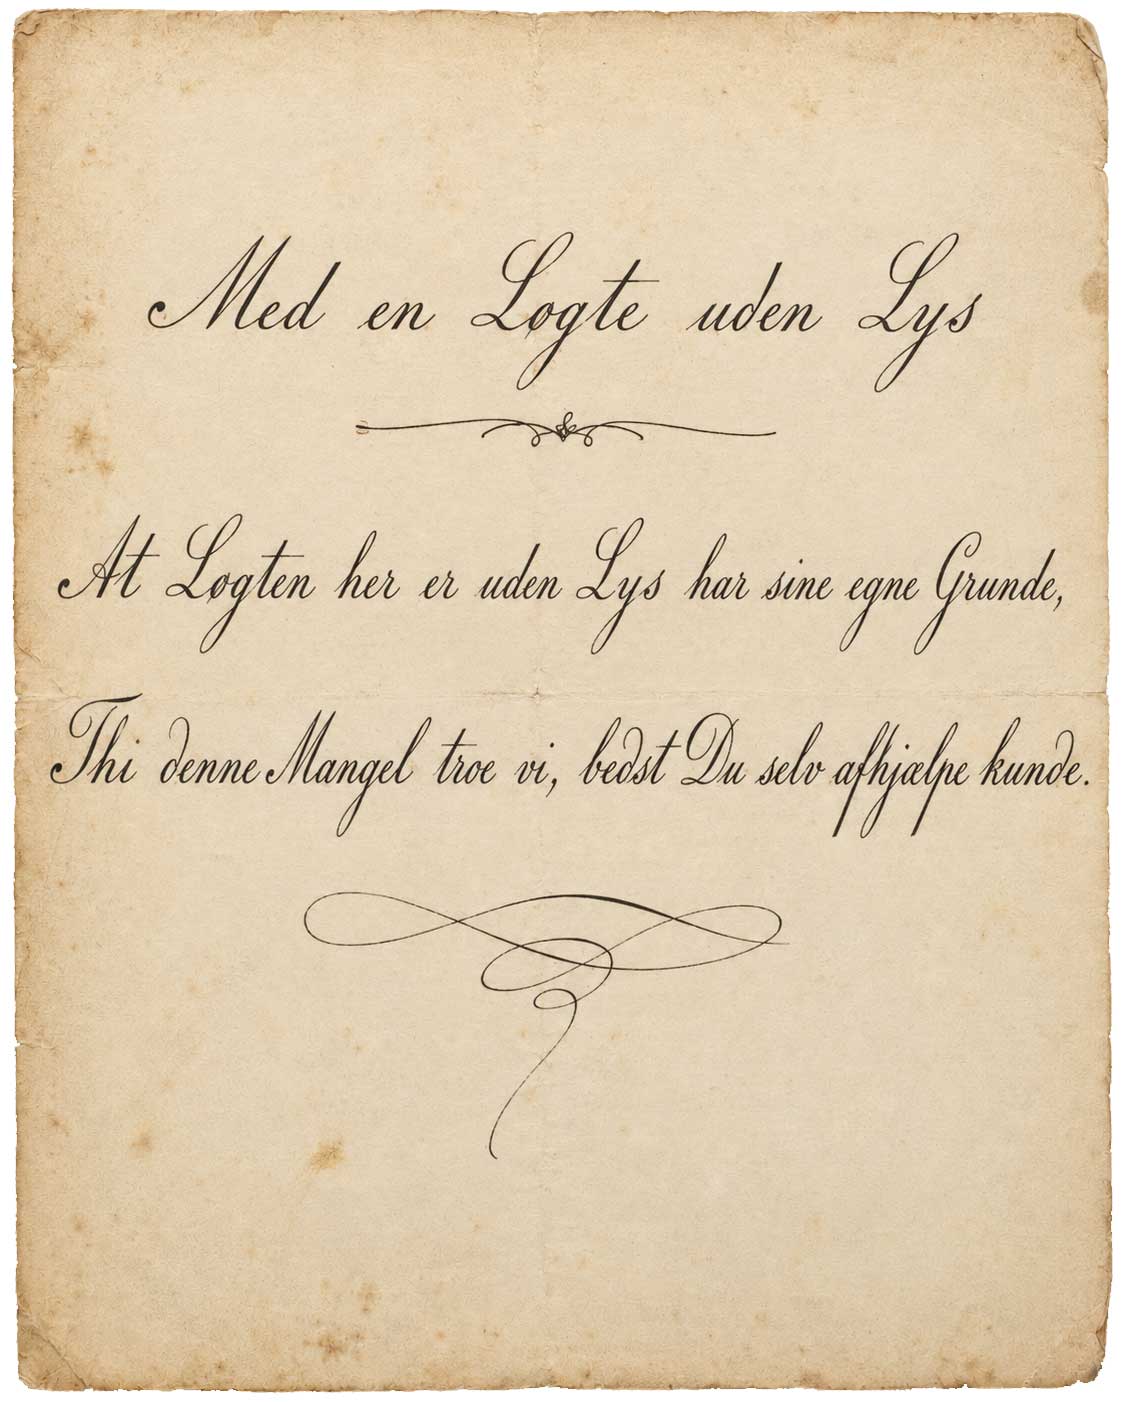 Med en Løgte uden Lys
At Løgten her er uden Lys har sine egne Grunde,
Thi denne Mangel troe vi, bedst Du selv afhjælpe kunde.